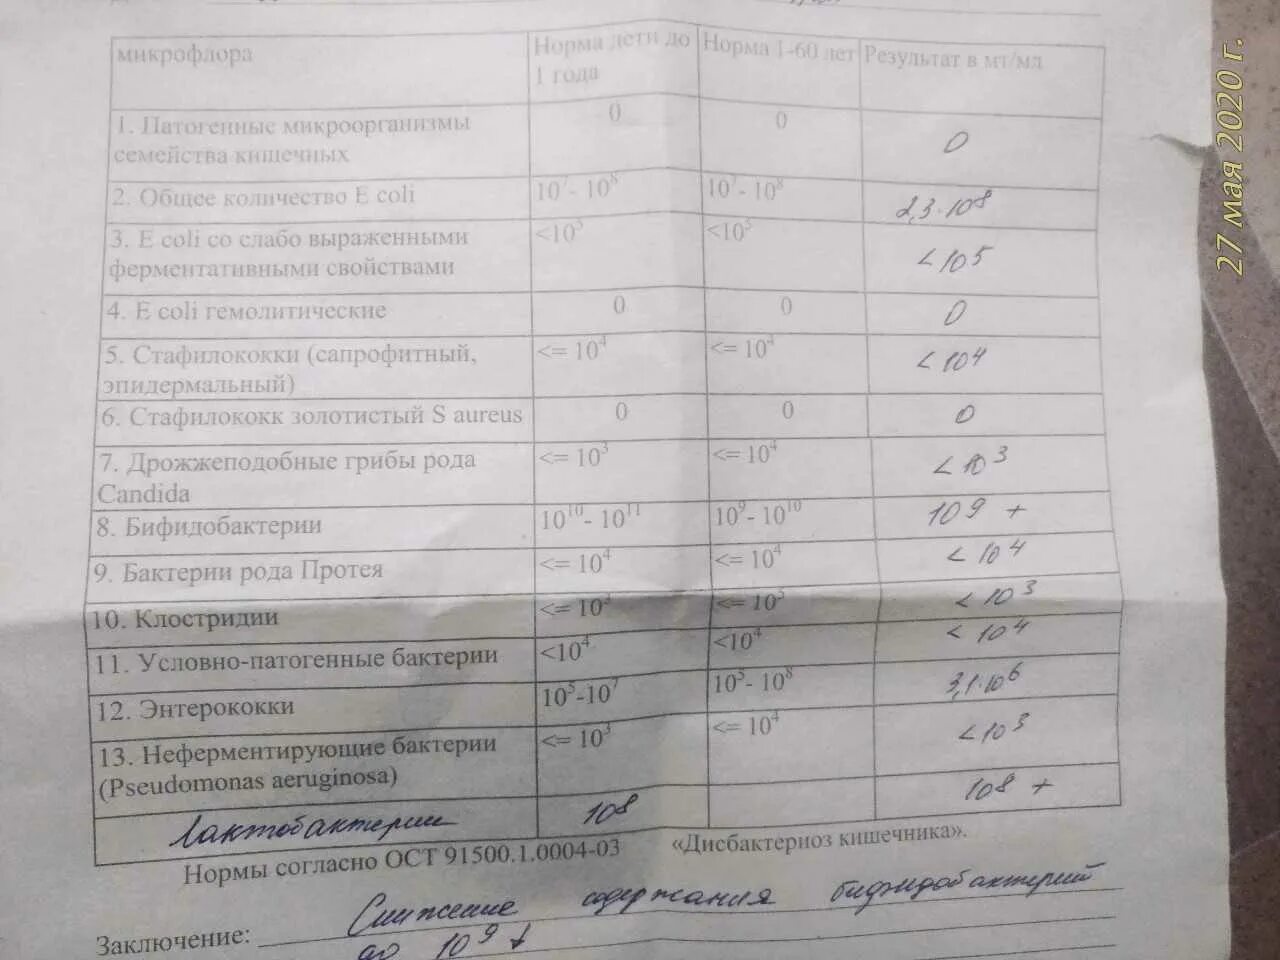 микрофлора Норма дети до 1 года Норма 1-60 лет Результат в мт/мл
1. Патогенные микроорганизмы семейства кишечных 0 0 0
2. Общее количество E coli 10^7- 10^8 10^7- 10^8 2,3·10^8
3. E coli со слабо выраженными ферментативными свойствами <10^5 <10^5 <10^5
4. E coli гемолитические 0 0 0
5. Стафилококки (сапрофитный, эпидермальный) <= 10^4 <= 10^4 <10^4
6. Стафилококк золотистый S aureus 0 0 0
7. Дрожжеподобные грибы рода Candida <= 10^3 <= 10^4 <10^3
8. Бифидобактерии 10^10- 10^11 10^9- 10^10 10^9 +
9. Бактерии рода Протея <= 10^4 <= 10^4 <10^4
10. Клостридии <= 10^3 <= 10^5 <10^3
11. Условно-патогенные бактерии <10^4 <10^4 <10^4
12. Энтерококки 10^5-10^7 10^5- 10^8 3,1·10^6
13. Неферментирующие бактерии (Pseudomonas aeruginosa) <= 10^3 <= 10^4 <10^3
Лактобактерии 10^8 10^8 +
Нормы согласно ОСТ 91500.1.0004-03 «Дисбактериоз кишечника».
Заключение: Снижение содержания бифидобактерий
до 10^9 ↓
27 мая 2020 г.